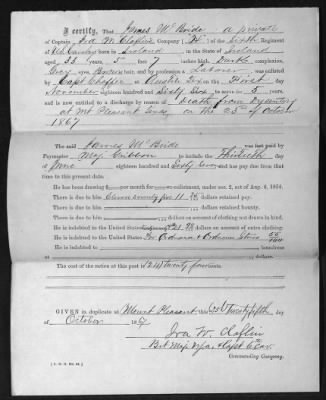 I certify, That James McBride a private
of Captain Ira W. Claflin's Company (    ) of the Sixth Regiment
of US Cavalry born in Ireland in the State of Ireland
aged 33 years 5 feet 7 inches high Dark complexion,
Grey eyes Brown hair, and by profession a Laborer was enlisted
by Capt Chaffee at Austin Tex on the First day of
November eighteen hundred and Sixty Six to serve in 5 years,
and is now entitled to a discharge by reason of Death from Dysentery
at Mt Pleasant Texas on the 25 of October
1867
The said James McBride was last paid by
Paymaster Maj. to include the Thirtieth day
of June eighteen hundred and Sixty Seven and has pay due from that
time to the present date.
There is due him dollars retained pay.
There is due him dollars on account of clothing not drawn in kind.
He is indebted to the United States dollars on account of extra clothing
He is indebted to the United States for Ordnance & Ordnance Stores 55/100
He is indebted to at
The cost of the rations at this post (24) twenty four cents.
GIVEN in duplicate at Mount Pleasant this 25th Twenty fifth day
of October 1867
Ira W. Claflin
Bvt Maj. USA & Capt 6 Cav.
Commanding Company.